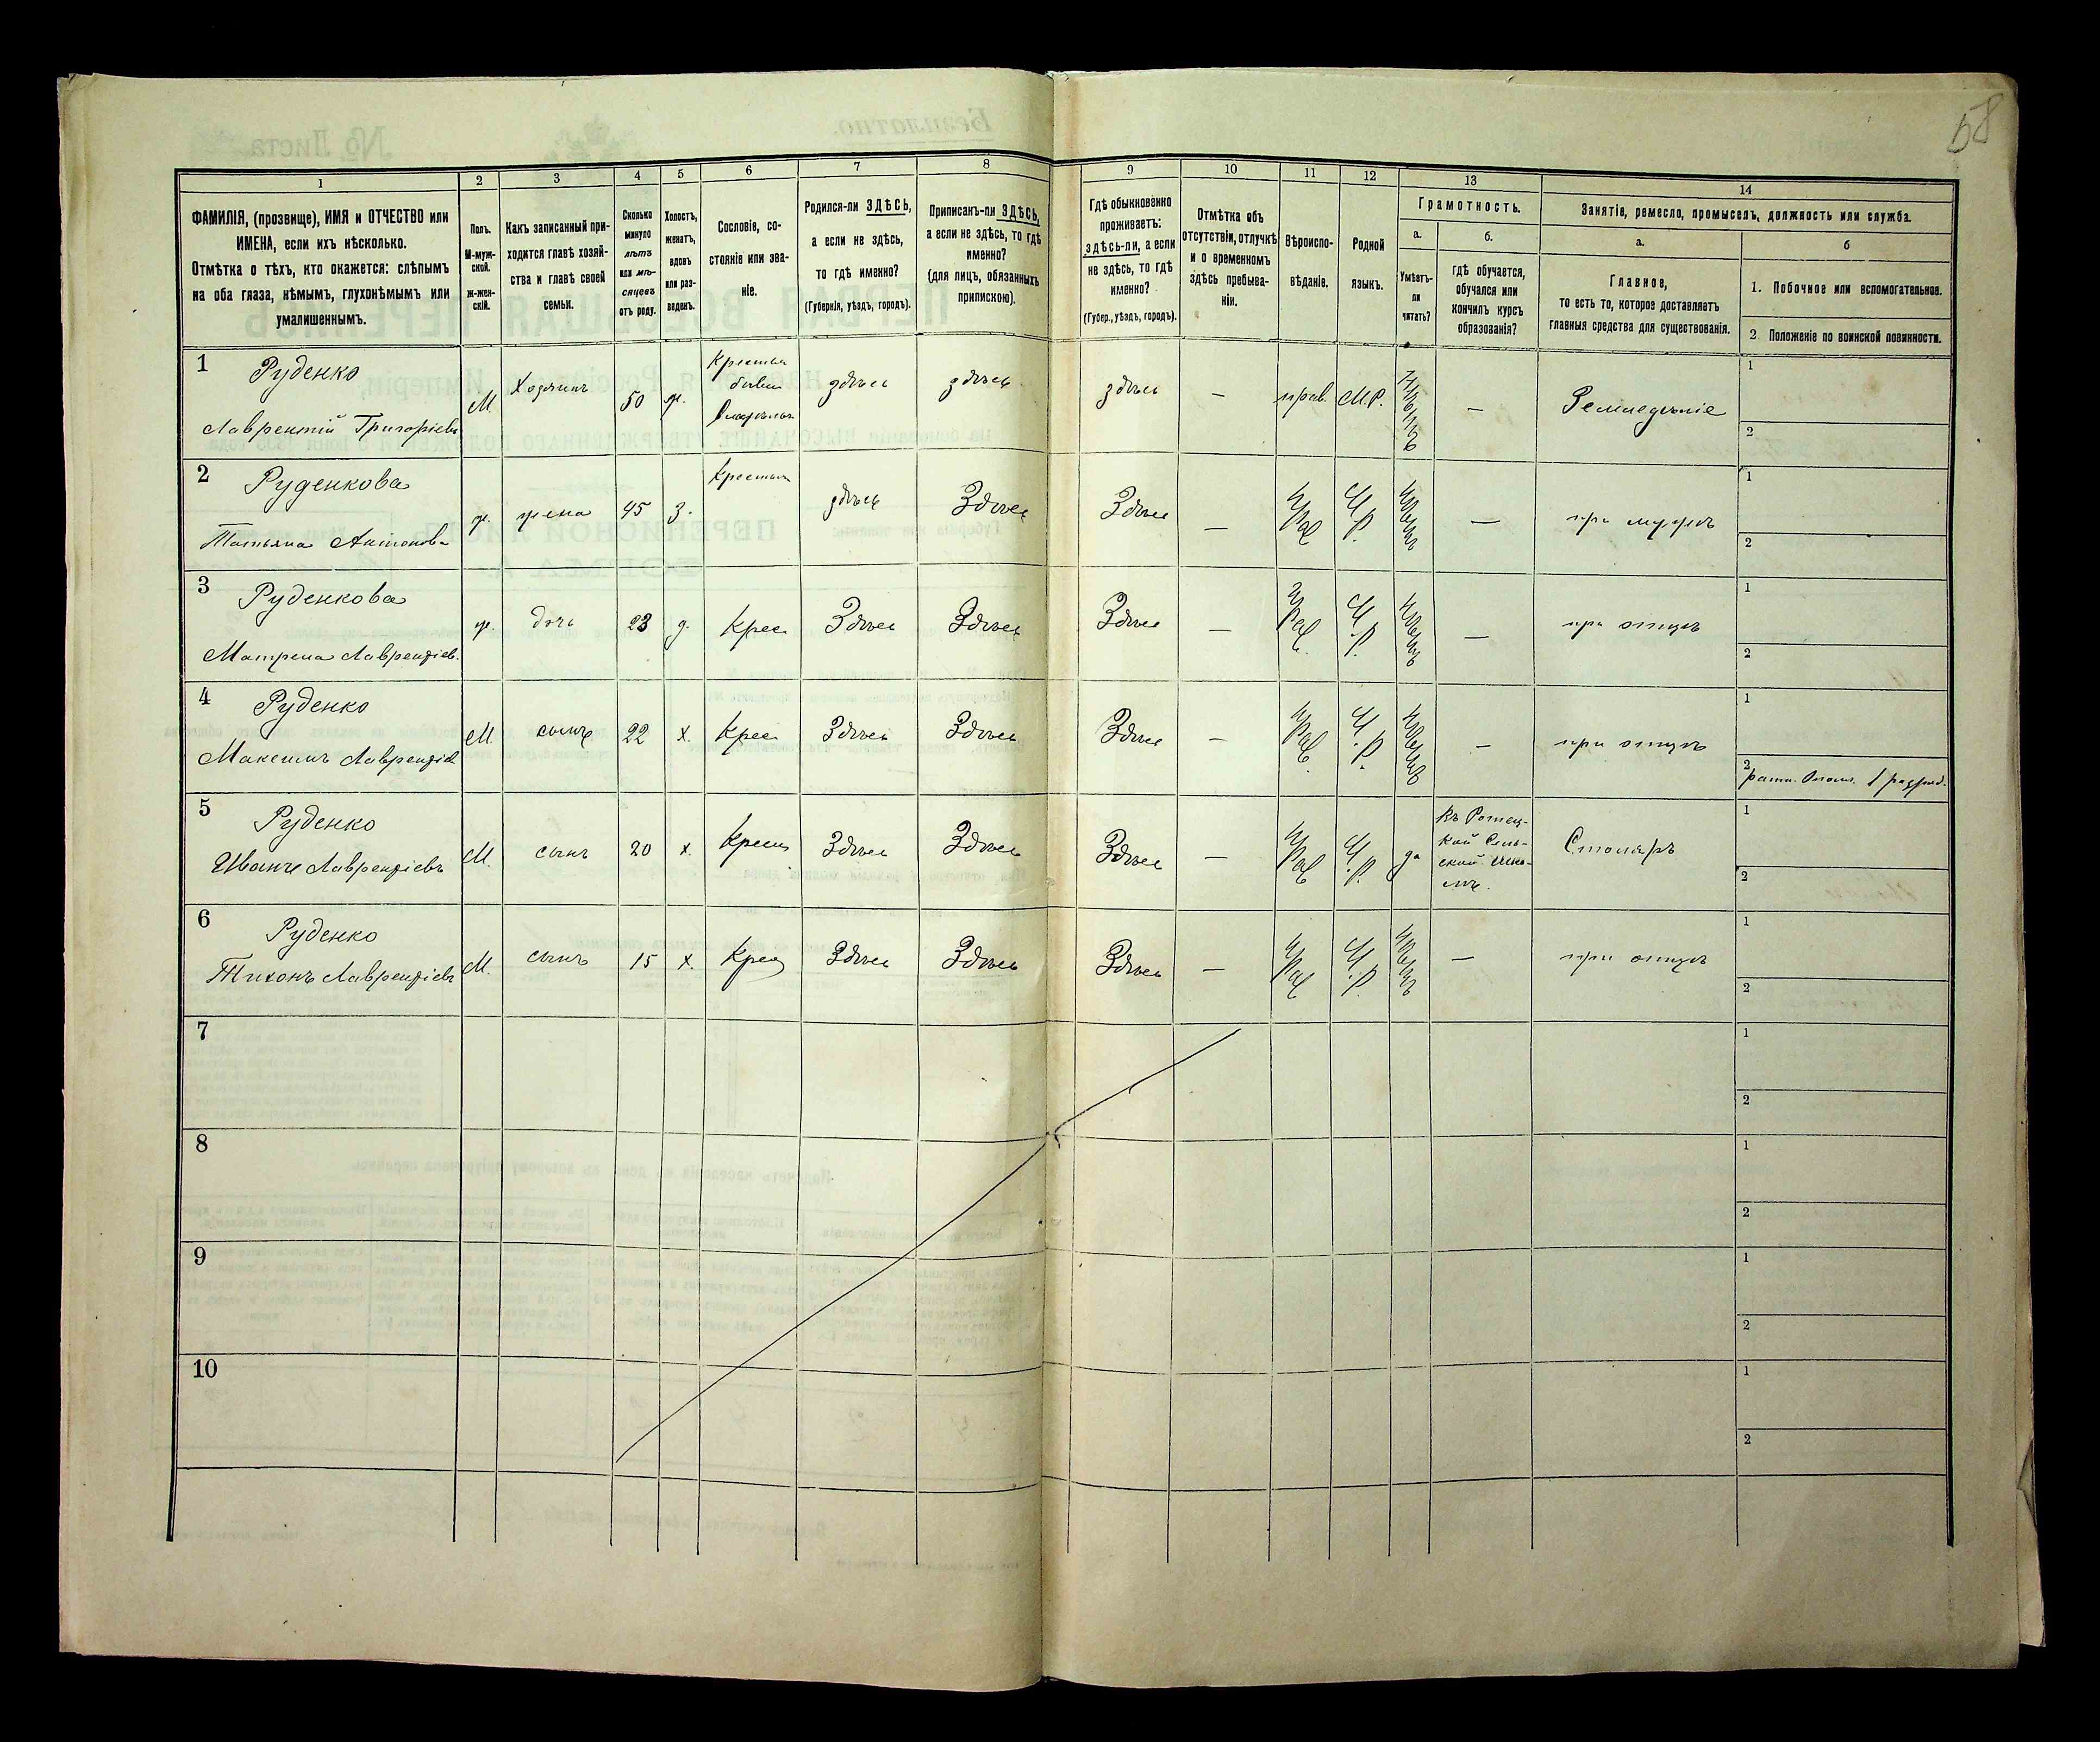 58
1
2
3
4
5
6
7
8
9
10
11
12
13
14
ФАМИЛІЯ, (прозвище), ИМЯ и ОТЧЕСТВО или
ИМЕНА, если ихъ нѣсколько.
Отмѣтка о тѣхъ, кто окажется: слѣпымъ
на оба глаза, нѣмымъ, глухонѣмымъ или
умалишеннымъ.
Полъ.
М-муж-
ской.
Ж-жен-
скій.
Какъ записанный при-
ходится главѣ хозяй-
ства и главѣ своей
семьи.
Сколько
минуло
лѣтъ
или мѣ-
сяцевъ
отъ роду.
Холостъ,
женатъ,
вдовъ
или раз-
веденъ.
Сословіе, со-
стояніе или зва-
ніе.
Родился-ли ЗДѢСЬ,
а если не здѣсь,
то гдѣ именно?
(Губернія, уѣздъ, городъ).
Приписанъ-ли ЗДѢСЬ,
а если не здѣсь, то гдѣ
именно?
(для лицъ, обязанныхъ
припискою).
Гдѣ обыкновенно
проживаетъ:
здѣсь-ли, а если
не здѣсь, то гдѣ
именно?
(Губер., уѣздъ, городъ).
Отмѣтка объ
отсутствіи, отлучкѣ
и о временномъ
здѣсь пребыва-
ніи.
Вѣроиспо-
вѣданіе.
Родной
языкъ.
Грамотность.
а.
Умѣетъ-
ли
читать?
б.
гдѣ обучается,
обучался или
кончилъ курсъ
образованія?
Занятіе, ремесло, промыселъ, должность или служба.
а.
Главное,
то есть то, которое доставляетъ
главныя средства для существованія.
б
1. Побочное или вспомогательное.
2. Положеніе по воинской повинности.
1 Руденко
Лаврентій Григоріевъ
М. Хозяинъ 50 ж. Крестья
бывш.
здѣсь здѣсь здѣсь — прав. М.Р. — Земледѣліе
1
2
2 Руденкова
Татьяна Антонов
ж. жена 45 з. Крестьян здѣсь Здѣсь Здѣсь — Прав М.Р. — при мужѣ
1
2
3 Руденкова
Матрена Лаврентіев.
ж. дочь 23 д. Крес Здѣсь Здѣсь Здѣсь — Прав. М.Р. — при отцѣ
1
2
4 Руденко
Максимъ Лаврентіев
М. сынъ 22 х. Крес Здѣсь Здѣсь Здѣсь — Прав. М.Р. — при отцѣ
1
2 ратн. Ополч. 1 разряд.
5 Руденко
Иванъ Лаврентіевъ
М. сынъ 20 х. Крест Здѣсь Здѣсь Здѣсь — Прав М.Р. да
кой Сель-
ской Шко-
лѣ.
Столяръ
1
2
6 Руденко
Тихонъ Лаврентіевъ
М. сынъ 15 х. Крес Здѣсь Здѣсь Здѣсь — Прав М.Р. — при отцѣ
1
2
7
1
2
8
1
2
9
1
2
10
1
2